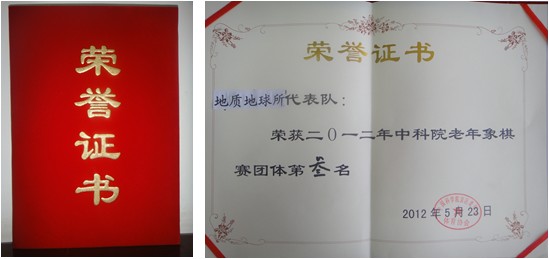 荣
誉
证
书
荣誉证书
地质地球所代表队：
荣获二〇一二年中科院老年象棋
赛团体第叁名
2012年5月23日